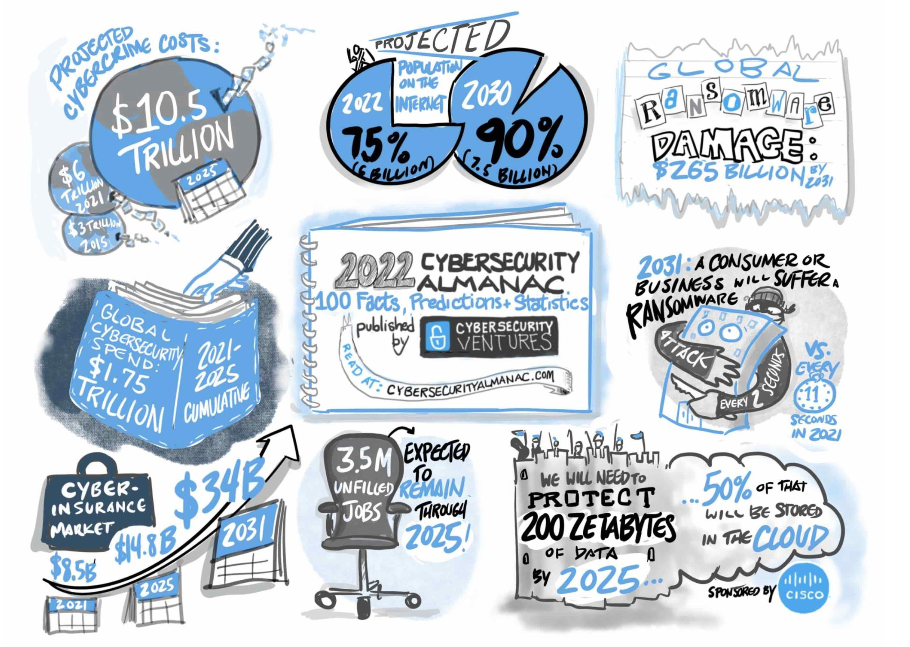 PROJECTED
CYBERCRIME COSTS:
$10.5
TRILLION
2025
$6
TRILLION
2021
$3 TRILLION
2015
PROJECTED
POPULATION
ON THE
INTERNET
2022
75%
(6 BILLION)
2030
90%
(7.5 BILLION)
GLOBAL
RansomwaRe
DAMAGE:
$265 BILLION BY
2031
GLOBAL
CYBERSECURITY
SPEND:
$1.75
TRILLION
2021-
2025
CUMULATIVE
2022 CYBERSECURITY
ALMANAC
100 Facts, Predictions + Statistics
published
by
CYBERSECURITY
VENTURES
READ AT: CYBERSECURITYALMANAC.COM
2031: A CONSUMER OR
BUSINESS WILL SUFFER A
RANSOMWARE
ATTACK
EVERY 2 SECONDS
VS.
EVERY
11
SECONDS
IN 2021
CYBER-
INSURANCE
MARKET
$8.5B
$14.8B
$34B
2021
2025
2031
3.5M
UNFILLED
JOBS
EXPECTED
TO
REMAIN
THROUGH
2025!
WE WILL NEED TO
PROTECT
200 ZETABYTES
OF DATA
BY 2025...
...50% OF THAT
WILL BE STORED
IN THE CLOUD
SPONSORED BY
CISCO